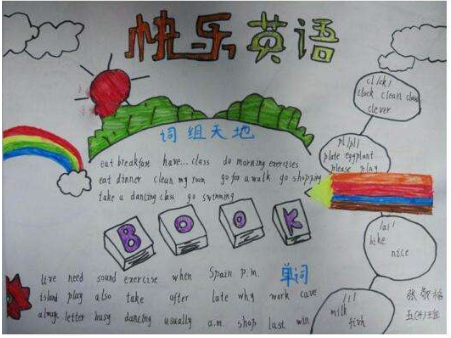 快乐英语
cl/kl/
clock clean close
clever
pl/pl/
plate eggplant
please play
/ai/
like
nice
/i/
milk
fish
词组天地
eat breakfast have... class do morning exercises
eat dinner clean my room go for a walk go shopping
take a dancing class go swimming
BOOK
单词
live need sound exercise when Spain p.m.
island play also take after late why work cave
always letter busy dancing usually a.m. shop last win